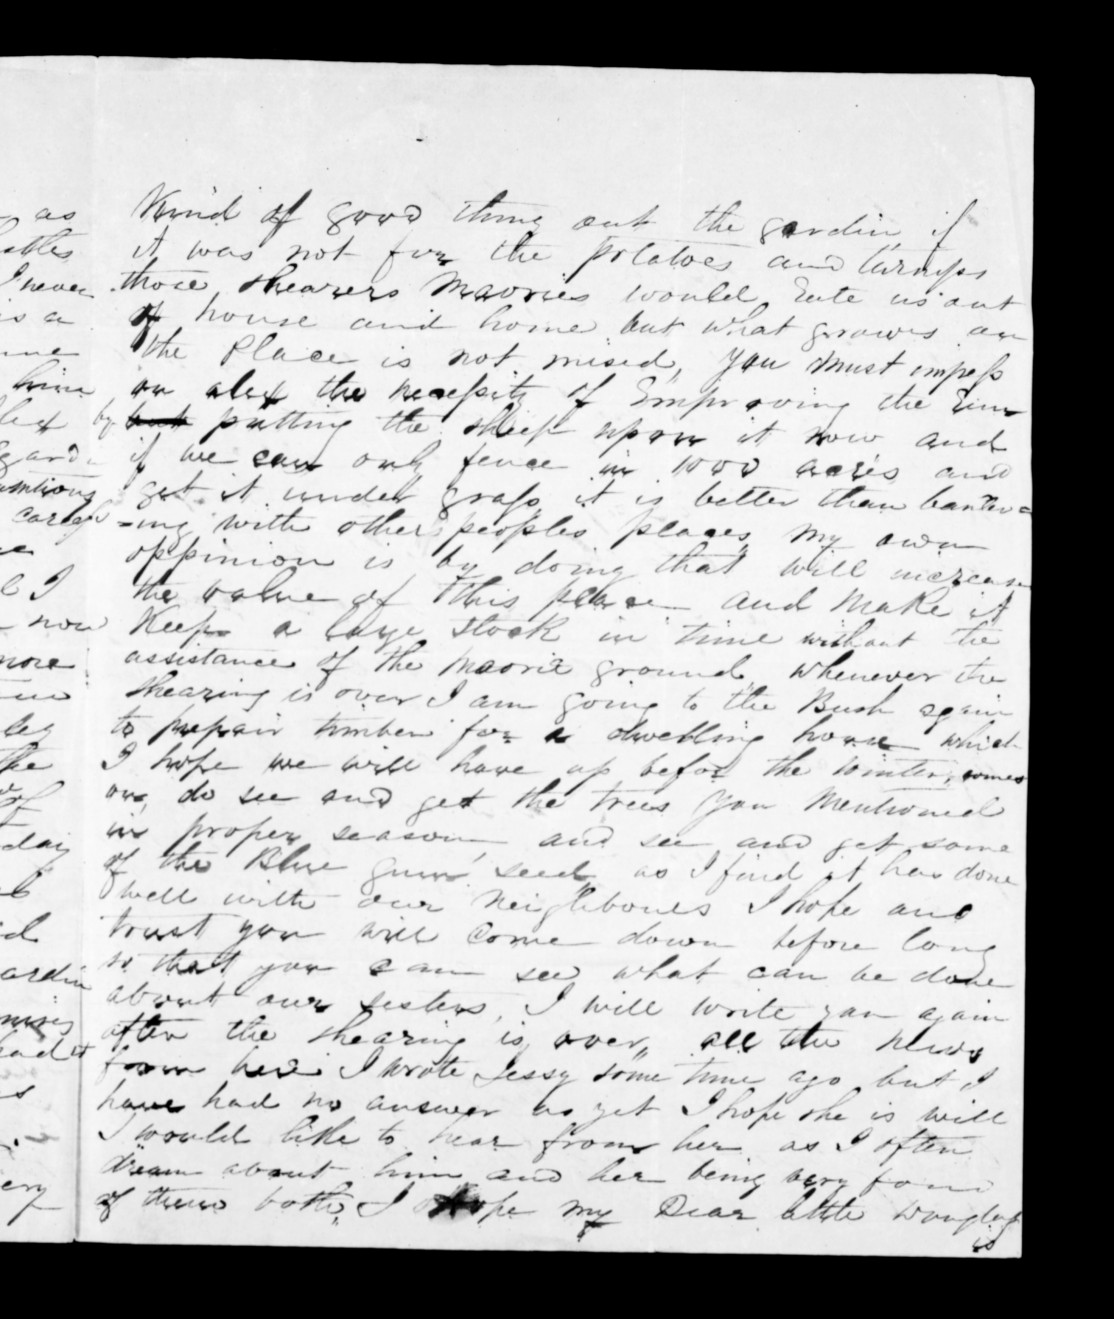 Kind of good thing out the gardin, if
it was not for the potatoes and turnips
those shearers Maories would Eate us out
of house and home but what grows on
the place is not mised, you must impess
on alex the necessity of Emproving the Run
by putting the sheep upon it now and
if we can only fence in 1000 acres and
get it under grass it is better than banter=
=ing with other peoples places, My own
oppinion is by doing that will increase
the value of this place and Make it
Keep a large stock in time without the
assistance of the Maorie ground, Whenever the
shearing is over I am going to the Bush again
to prepair timber for a dwelling house which
I hope we will have up before the Winter, comes
on, do see and get the trees you Mentioned
in proper season, and see and get some
of the Blue gum seed as I find it has done
well with our Neighbours I hope and
trust you will come down before long
so that you can see what can be done
about our sisters, I will write you again
after the shearing is over, all the News
from here I wrote Jessy some time ago but I
have had no answer as yet I hope she is well
I would like to hear from her as I often
dream about him and her being very fond
of them both, I hope my Dear little Douglass
is
as
I never
is a
him
by
I
now
more
the
of
day